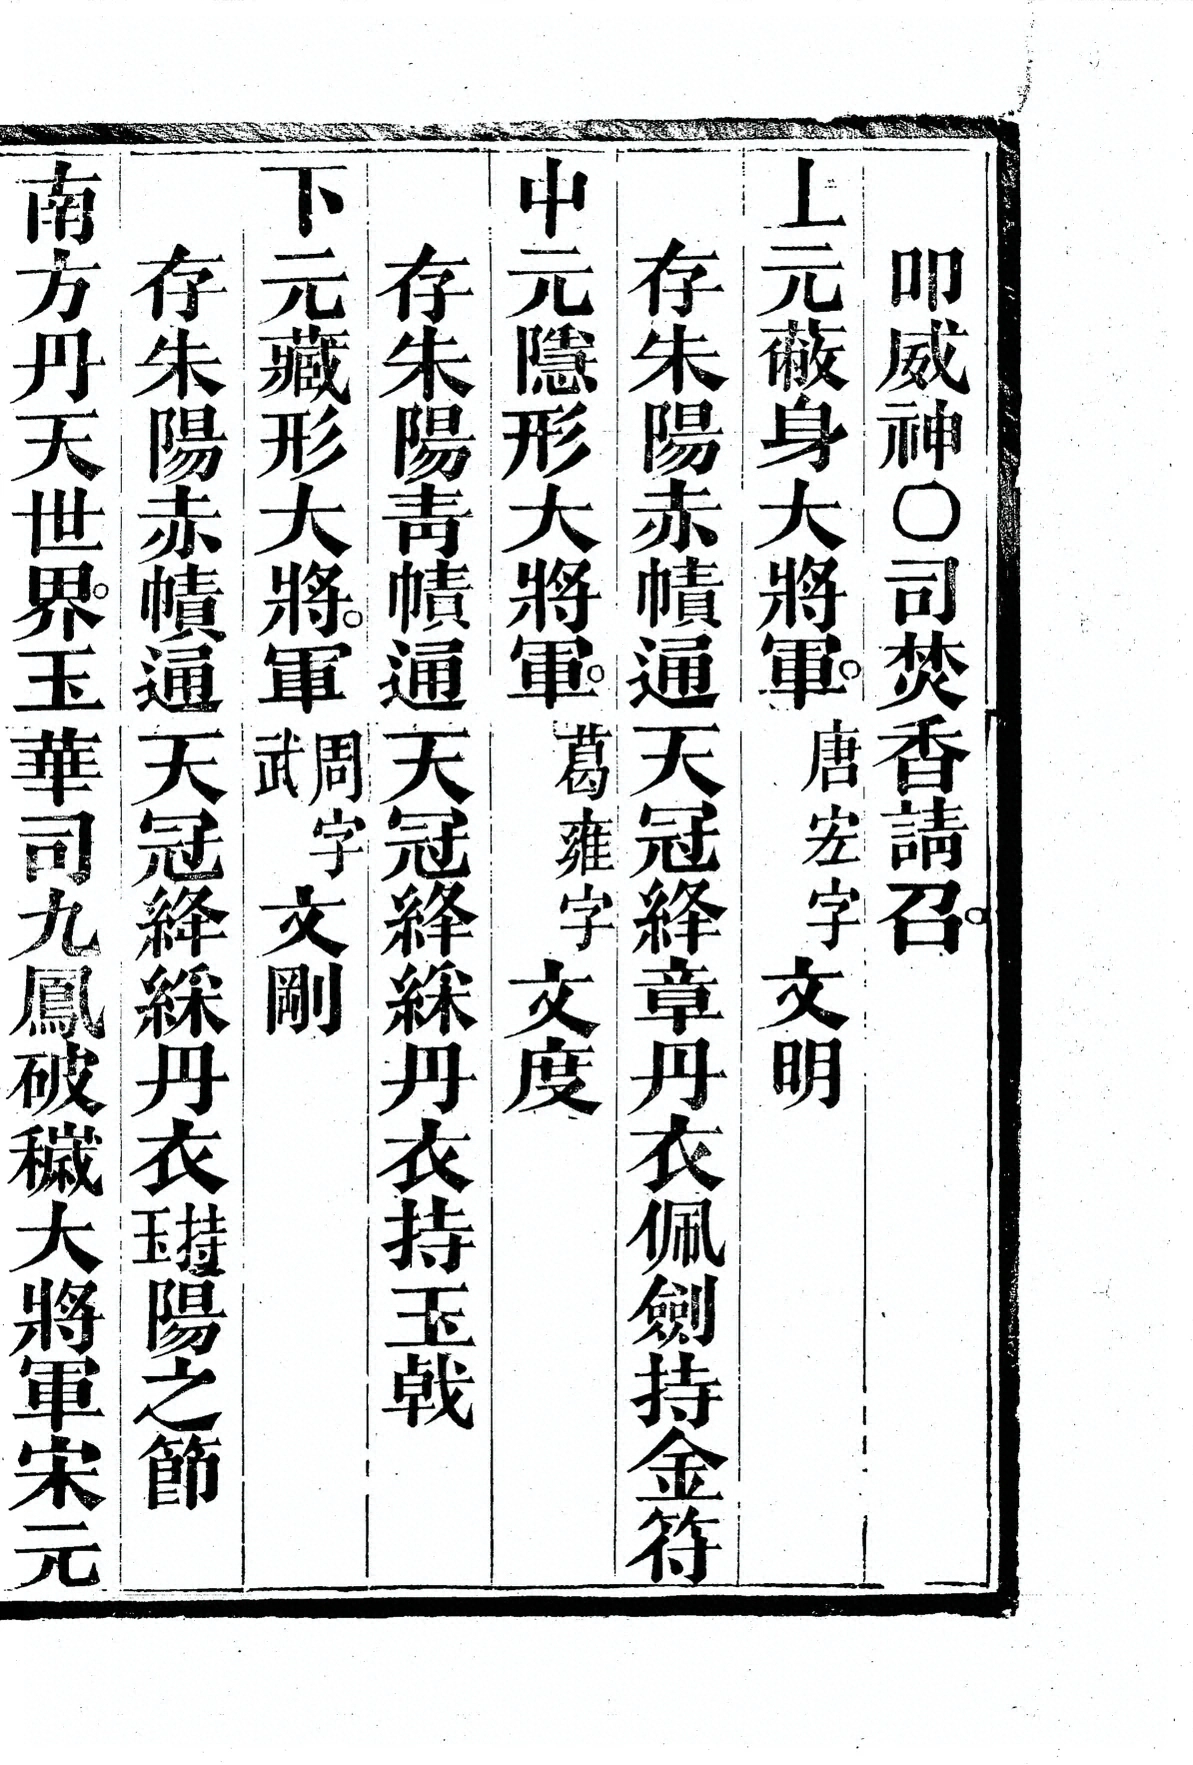 叩威神○司焚香請召。
上元蔽身大將軍。唐宏字文明
存朱陽赤幘通天冠絳章丹衣佩劍持金符
中元隱形大將軍。葛雍字文度
存朱陽靑幘通天冠絳綵丹衣持玉戟
下元藏形大將。軍周字武文剛
存朱陽赤幘通天冠絳綵丹衣持玉陽之節
南方丹天世界。玉華司九鳳破穢大將軍宋元